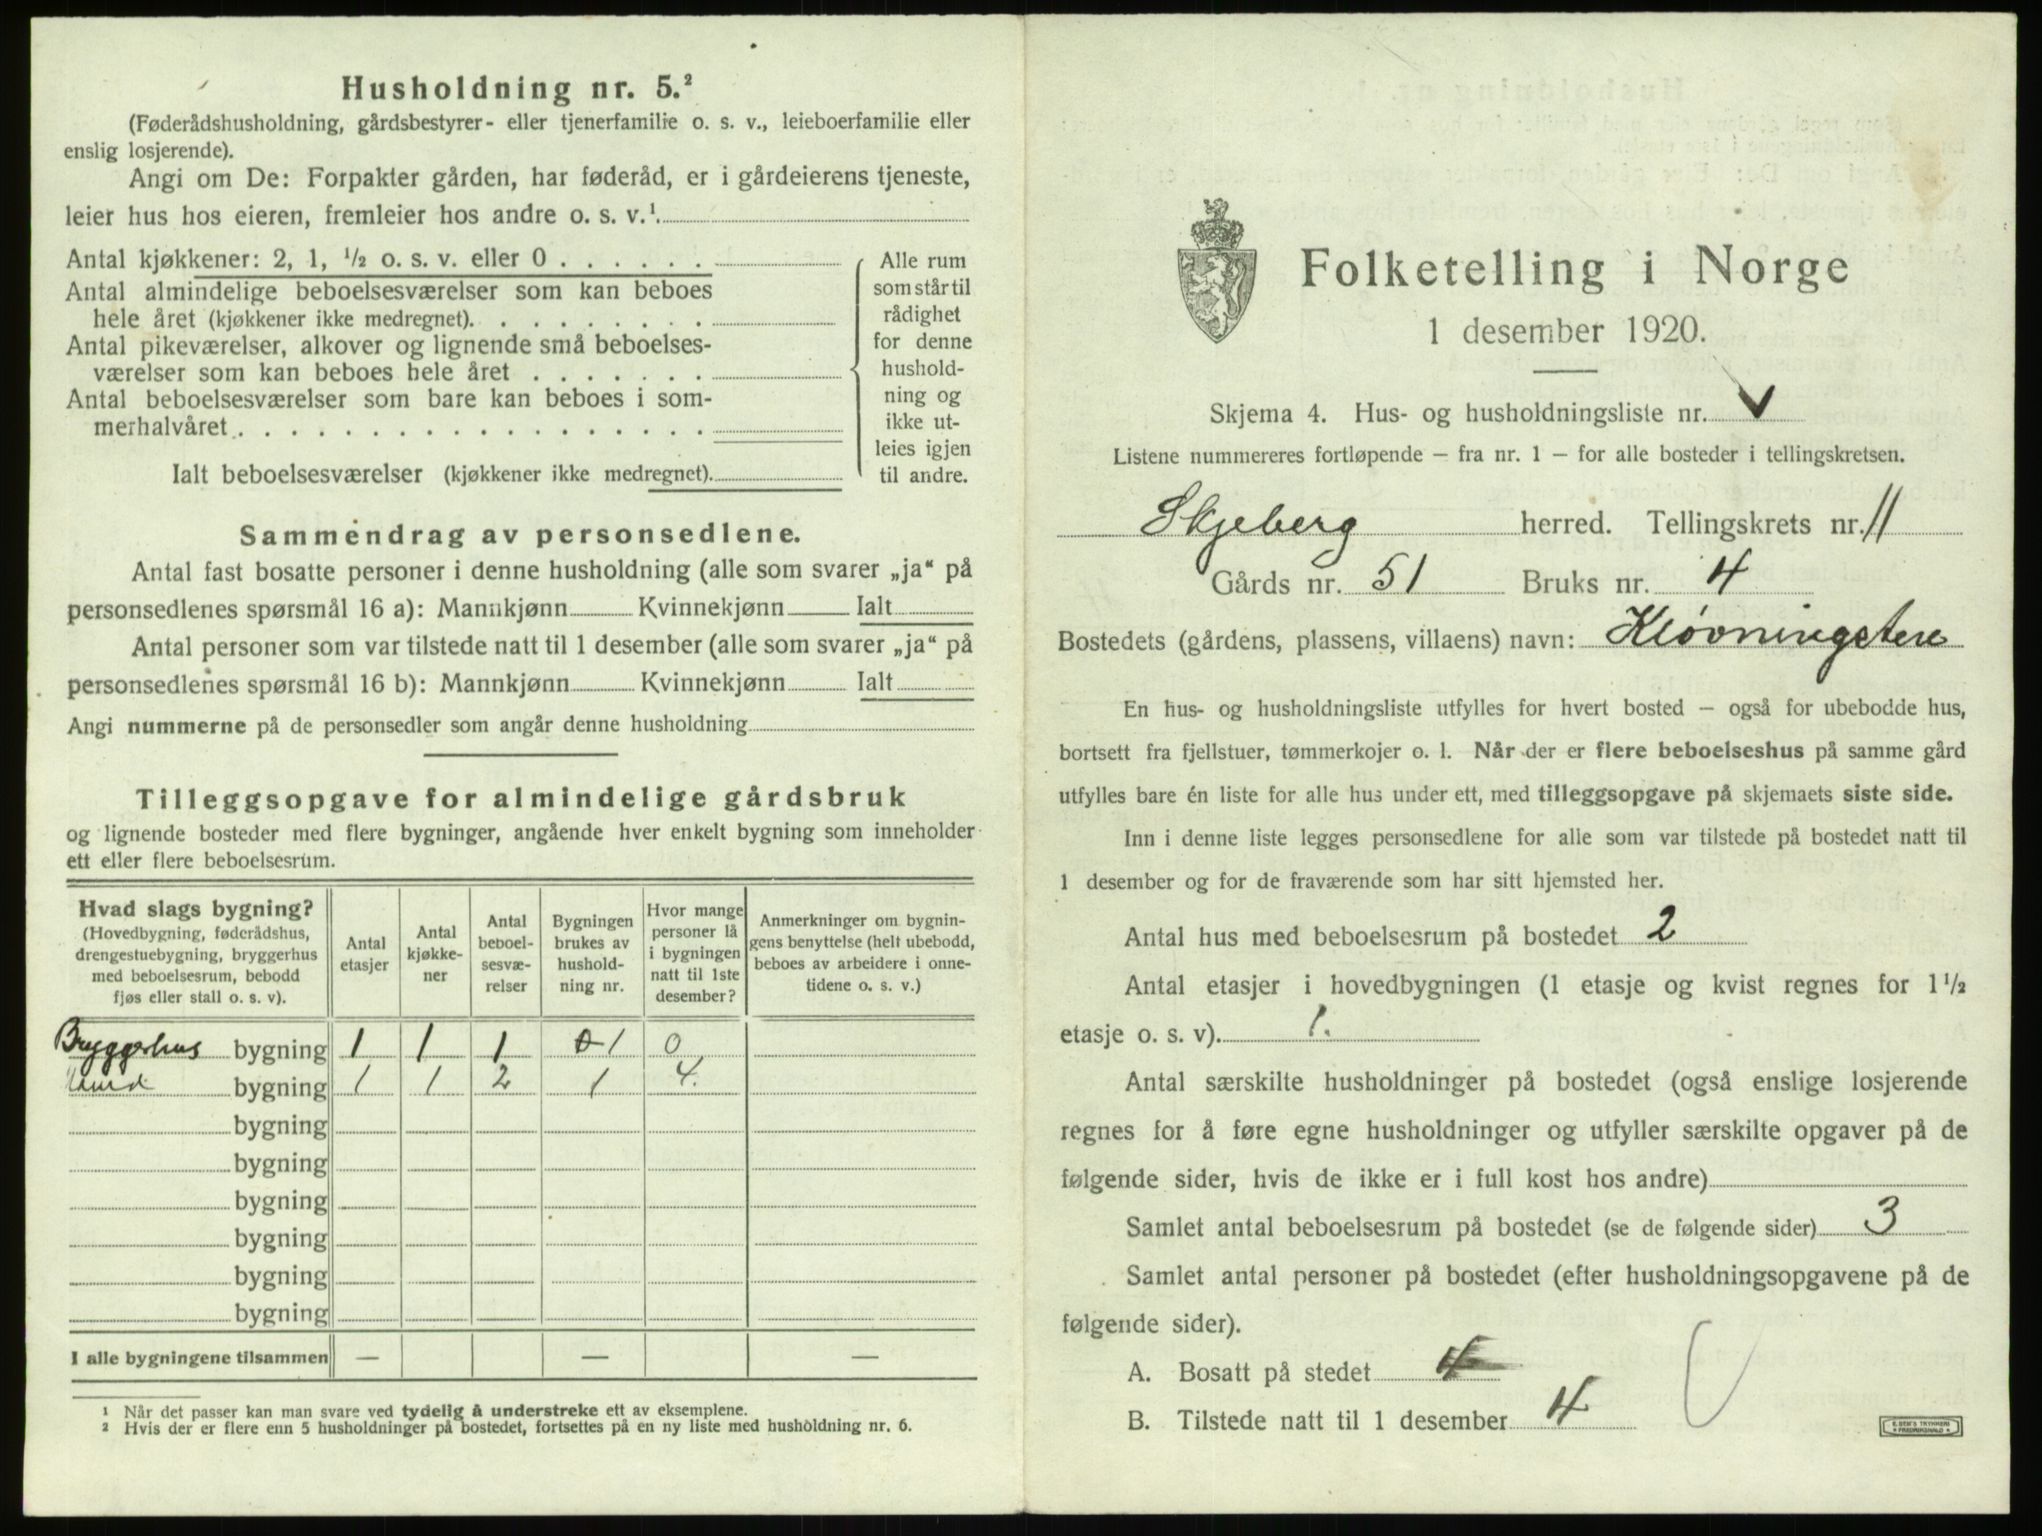 Husholdning nr. 5.²
(Føderådshusholdning, gårdsbestyrer- eller tjenerfamilie o. s. v., leieboerfamilie eller
enslig losjerende).
Angi om De: Forpakter gården, har føderåd, er i gårdeierens tjeneste,
leier hus hos eieren, fremleier hos andre o. s. v.¹
Antal kjøkkener: 2, 1, ½ o. s. v. eller 0
Antal almindelige beboelsesværelser som kan beboes
hele året (kjøkkener ikke medregnet).
Antal pikeværelser, alkover og lignende små beboelses-
værelser som kan beboes hele året
Antal beboelsesværelser som bare kan beboes i som-
merhalvåret
Ialt beboelsesværelser (kjøkkener ikke medregnet).
Alle rum
som står til
rådighet
for denne
hushold-
ning og
ikke ut-
leies igjen
til andre.
Sammendrag av personsedlene.
Antal fast bosatte personer i denne husholdning (alle som svarer „ja“ på
personsedlenes spørsmål 16 a): Mannkjønn Kvinnekjønn Ialt
Antal personer som var tilstede natt til 1 desember (alle som svarer „ja“ på
personsedlenes spørsmål 16 b): Mannkjønn Kvinnekjønn Ialt
Angi nummerne på de personsedler som angår denne husholdning
Tilleggsopgave for almindelige gårdsbruk
og lignende bosteder med flere bygninger, angående hver enkelt bygning som inneholder
ett eller flere beboelsesrum.
Hvad slags bygning?
(Hovedbygning, føderådshus,
drengestuebygning, bryggerhus
med beboelsesrum, bebodd
fjøs eller stall o. s. v).
Antal
etasjer
Antal
kjøkke-
ner
Antal
beboel-
sesvæ-
relser
Bygningen
brukes av
hushold-
ning nr.
Hvor mange
personer lå
i bygningen
natt til 1ste
desember?
Anmerkninger om bygnin-
gens benyttelse (helt ubebodd,
beboes av arbeidere i onne-
tidene o. s. v.)
Bryggerhus bygning 1 1 1 0 1 0
bygning 1 1 2 1 4.
bygning
bygning
bygning
bygning
bygning
bygning
I alle bygningene tilsammen — — —
¹ Når det passer kan man svare ved tydelig å understreke ett av eksemplene.
² Hvis der er flere enn 5 husholdninger på bostedet, fortsettes på en ny liste med husholdning nr. 6.
Folketelling i Norge
1 desember 1920.
Skjema 4. Hus- og husholdningsliste nr. V
Listene nummereres fortløpende – fra nr. 1 – for alle bosteder i tellingskretsen.
Skjeberg herred. Tellingskrets nr. 11
Gårds nr. 51 Bruks nr. 4
Bostedets (gårdens, plassens, villaens) navn: Kløvningsten
En hus- og husholdningsliste utfylles for hvert bosted – også for ubebodde hus,
bortsett fra fjellstuer, tømmerkojer o. l. Når der er flere beboelseshus på samme gård
utfylles bare én liste for alle hus under ett, med tilleggsopgave på skjemaets siste side.
Inn i denne liste legges personsedlene for alle som var tilstede på bostedet natt til
1 desember og for de fraværende som har sitt hjemsted her.
Antal hus med beboelsesrum på bostedet 2
Antal etasjer i hovedbygningen (1 etasje og kvist regnes for 1½
etasje o. s. v). 1.
Antal særskilte husholdninger på bostedet (også enslige losjerende
regnes for å føre egne husholdninger og utfyller særskilte opgaver på de
følgende sider, hvis de ikke er i full kost hos andre)
Samlet antal beboelsesrum på bostedet (se de følgende sider) 3
Samlet antal personer på bostedet (efter husholdningsopgavene på de
følgende sider).
A. Bosatt på stedet 4
B. Tilstede natt til 1 desember 4